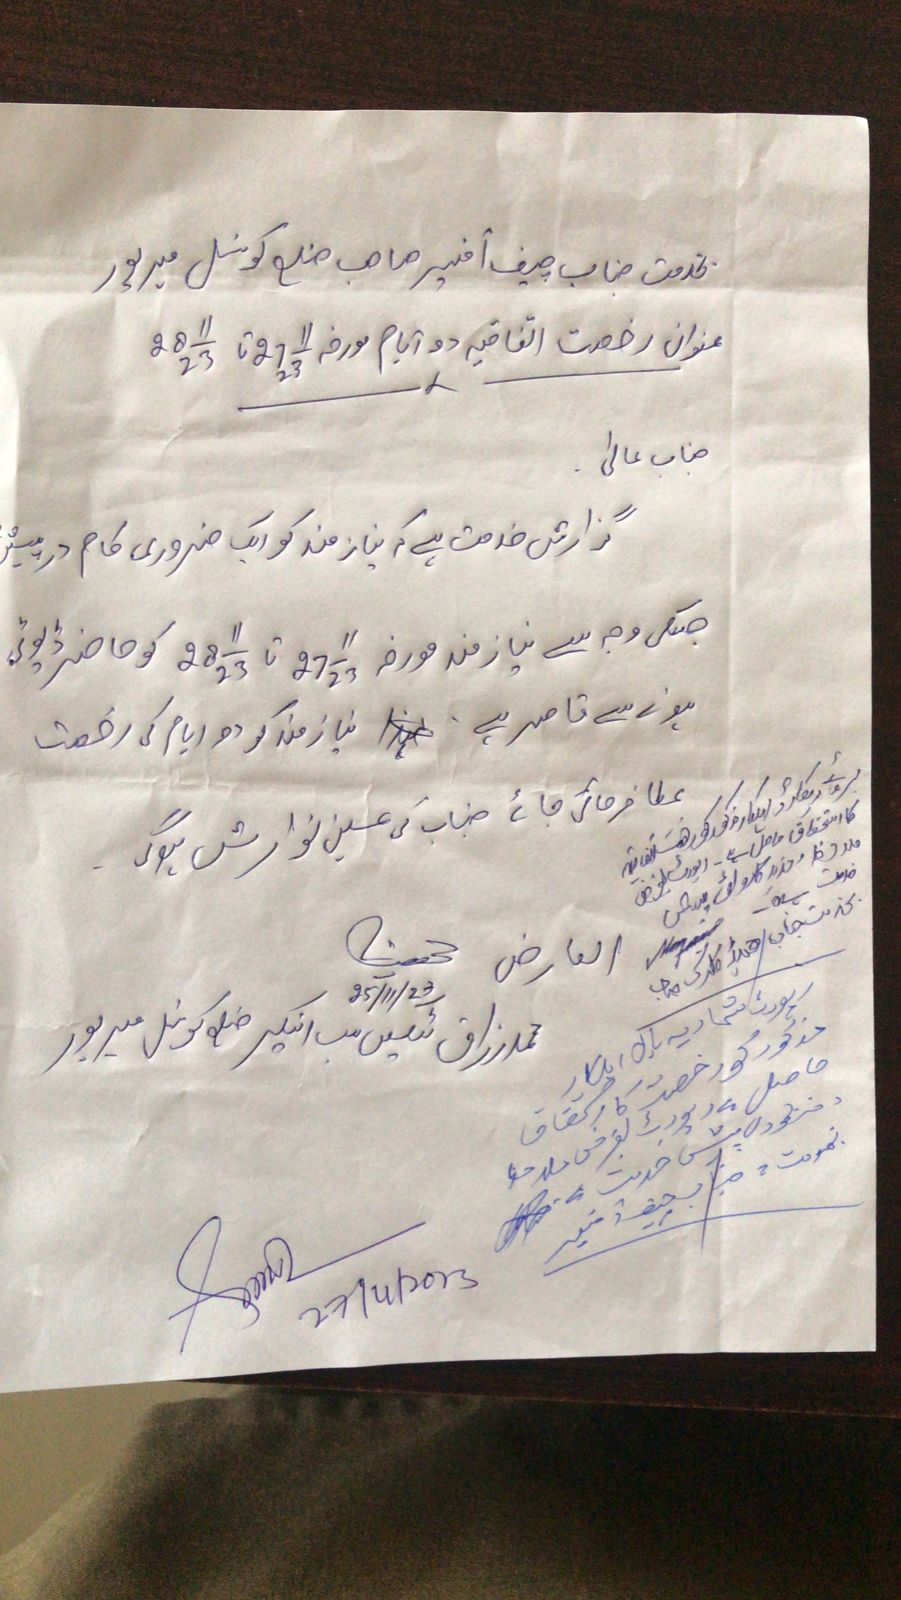 بخدمت جناب چیف آفیسر صاحب ضلع کونسل میرپور
عنوان رخصت اتفاقیہ دو ایام مورخہ 27/11/23 تا 28/11/23
جناب عالی۔
گزارش خدمت ہے کہ نیازمند کو ایک ضروری کام درپیش
جسکی وجہ سے نیازمند مورخہ 27/11/23 تا 28/11/23 کو حاضر ڈیوٹی
ہونے سے قاصر ہے۔ نیازمند کو دو ایام کی رخصت
عطا فرمائی جائے جناب کی عین نوازش ہوگی۔
العارض
25/11/23
محمد رزاق ٹیکس سب انسپکٹر ضلع کونسل میرپور
بروئے ریکارڈ اہلکار مذکور کو رخصت اتفاقیہ
کا استحقاق حاصل ہے۔ رپورٹ بغرض
ملاحظہ و مزید کارروائی پیش
خدمت ہے۔
بخدمت جناب ہیڈ کلرک صاحب
رپورٹ اہلکار
مذکور کو رخصت کا استحقاق
حاصل ہے رپورٹ بغرض ملاحظہ
و منظوری پیش خدمت ہے
بخدمت جناب چیف آفیسر
27/11/2023